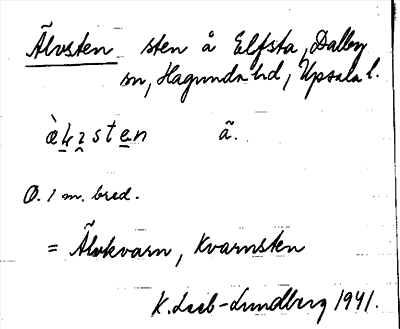 Älvsten sten å Elfsta, Dalby
sn, Hagunda hd, Upsala l.
ã.
O. 1 m. bred.
= Älvkvarn, Kvarnsten
K. Leeb-Lundberg 1941.